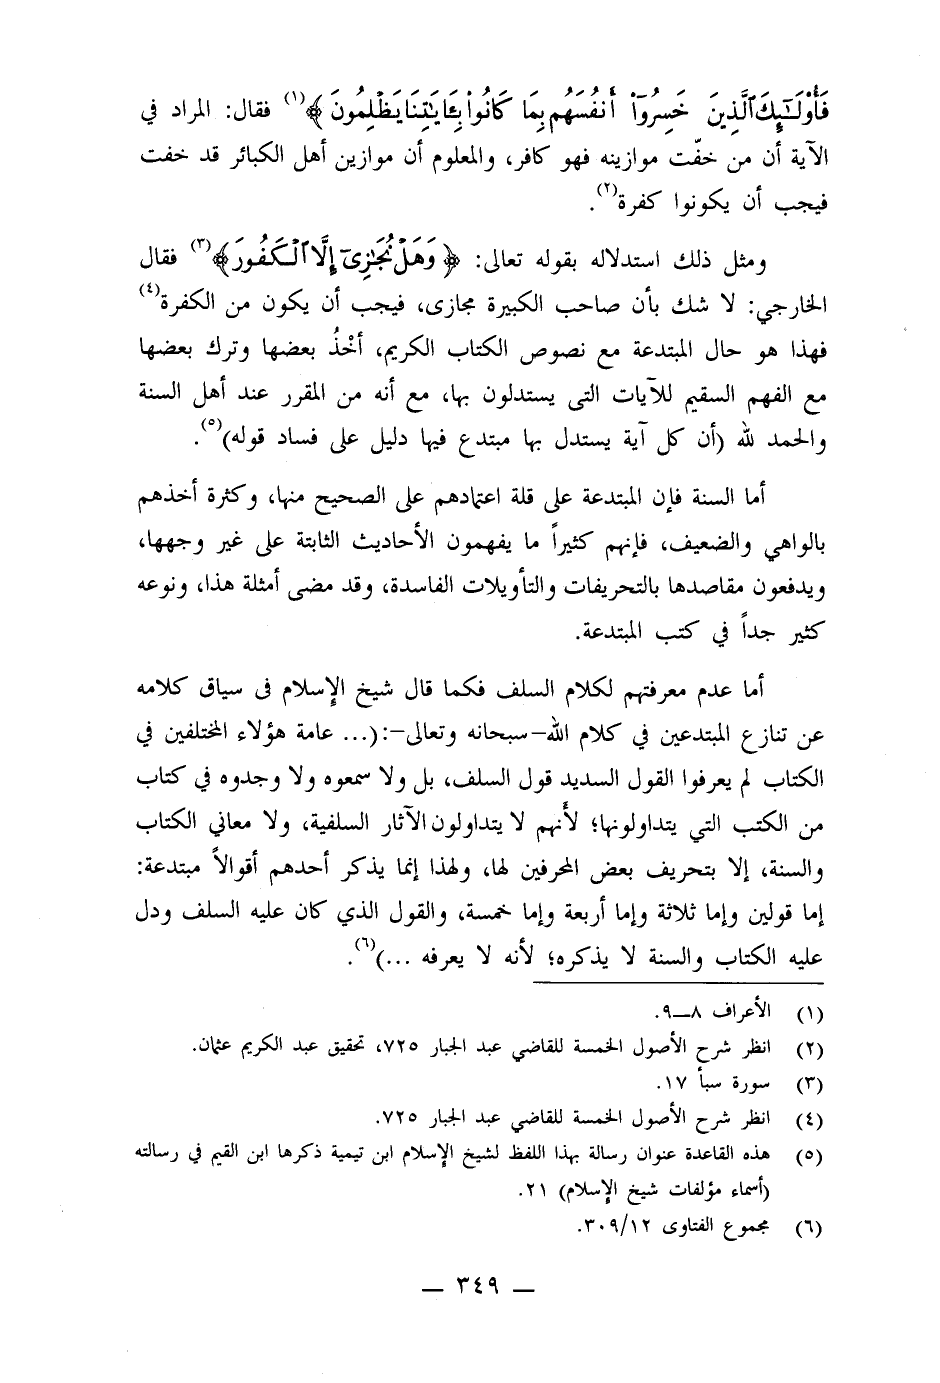 فَأُوْلَٰٓئِكَ ٱلَّذِينَ خَسِرُوٓاْ أَنفُسَهُم بِمَا كَانُواْ بِـَٔايَٰتِنَا يَظْلِمُونَ﴾(١) فقال: المراد في
الآية أن من خفّت موازينه فهو كافر، والمعلوم أن موازين أهل الكبائر قد خفت
فيجب أن يكونوا كفرة(٢).
ومثل ذلك استدلاله بقوله تعالى: ﴿وَهَلْ نُجَٰزِىٓ إِلَّا ٱلْكَفُورَ﴾(٣) فقال
الخارجي: لا شك بأن صاحب الكبيرة مجازى، فيجب أن يكون من الكفرة(٤)
فهذا هو حال المبتدعة مع نصوص الكتاب الكريم، أخْذُ بعضها وترك بعضها
مع الفهم السقيم للآيات التى يستدلون بها، مع أنه من المقرر عند أهل السنة
والحمد لله (أن كل آية يستدل بها مبتدع فيها دليل على فساد قوله)(٥).
أما السنة فإن المبتدعة على قلة اعتمادهم على الصحيح منها، وكثرة أخذهم
بالواهي والضعيف، فإنهم كثيراً ما يفهمون الأحاديث الثابتة على غير وجهها،
ويدفعون مقاصدها بالتحريفات والتأويلات الفاسدة، وقد مضى أمثلة هذا، ونوعه
كثير جداً في كتب المبتدعة.
أما عدم معرفتهم لكلام السلف فكما قال شيخ الإسلام فى سياق كلامه
عن تنازع المبتدعين في كلام الله–سبحانه وتعالى–:(... عامة هؤلاء المختلفين في
الكتاب لم يعرفوا القول السديد قول السلف، بل ولا سمعوه ولا وجدوه في كتاب
من الكتب التي يتداولونها؛ لأنهم لا يتداولون الآثار السلفية، ولا معاني الكتاب
والسنة، إلا بتحريف بعض المحرفين لها، ولهذا إنما يذكر أحدهم أقوالاً مبتدعة:
إما قولين وإما ثلاثة وإما أربعة وإما خمسة، والقول الذي كان عليه السلف ودل
عليه الكتاب والسنة لا يذكره؛ لأنه لا يعرفه ...)(٦).
(١) الأعراف ٨ــ٩.
(٢) انظر شرح الأصول الخمسة للقاضي عبد الجبار ٧٢٥، تحقيق عبد الكريم عثمان.
(٣) سورة سبأ ١٧.
(٤) انظر شرح الأصول الخمسة للقاضي عبد الجبار ٧٢٥.
(٥) هذه القاعدة عنوان رسالة بهذا اللفظ لشيخ الإسلام ابن تيمية ذكرها ابن القيم في رسالته
(أسماء مؤلفات شيخ الإسلام) ٢١.
(٦) مجموع الفتاوى ٣٠٩/١٢.
— ٣٤٩ —